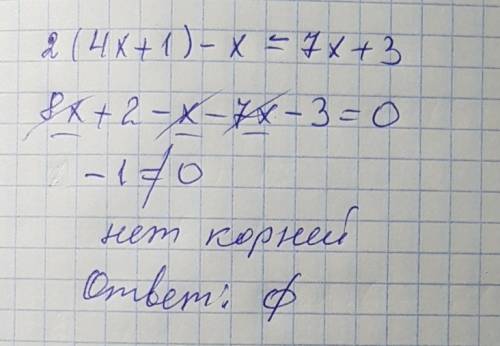 2(4x+1)-x=7x+3
8x+2-x-7x-3=0
-1≠0
нет корней
Ответ: ∅